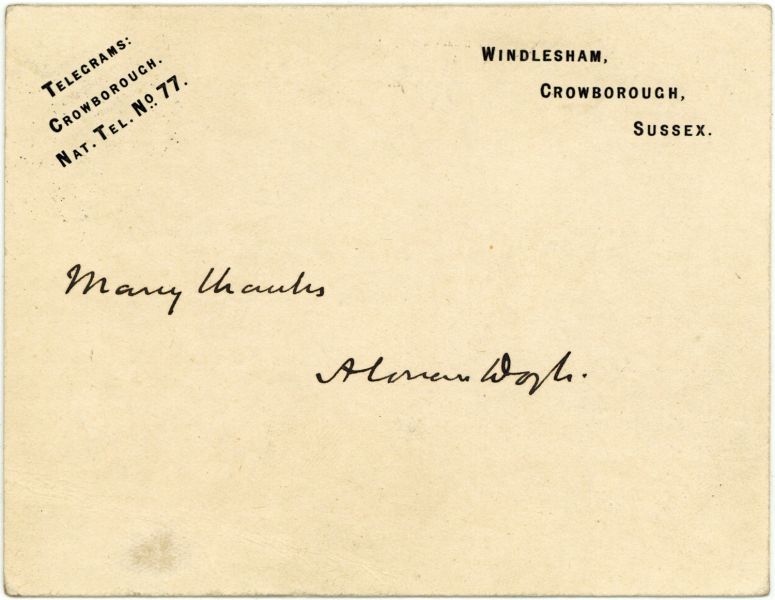 TELEGRAMS:
CROWBOROUGH.
NAT. TEL. No. 77.
WINDLESHAM,
CROWBOROUGH,
SUSSEX.
Many thanks
A Conan Doyle.